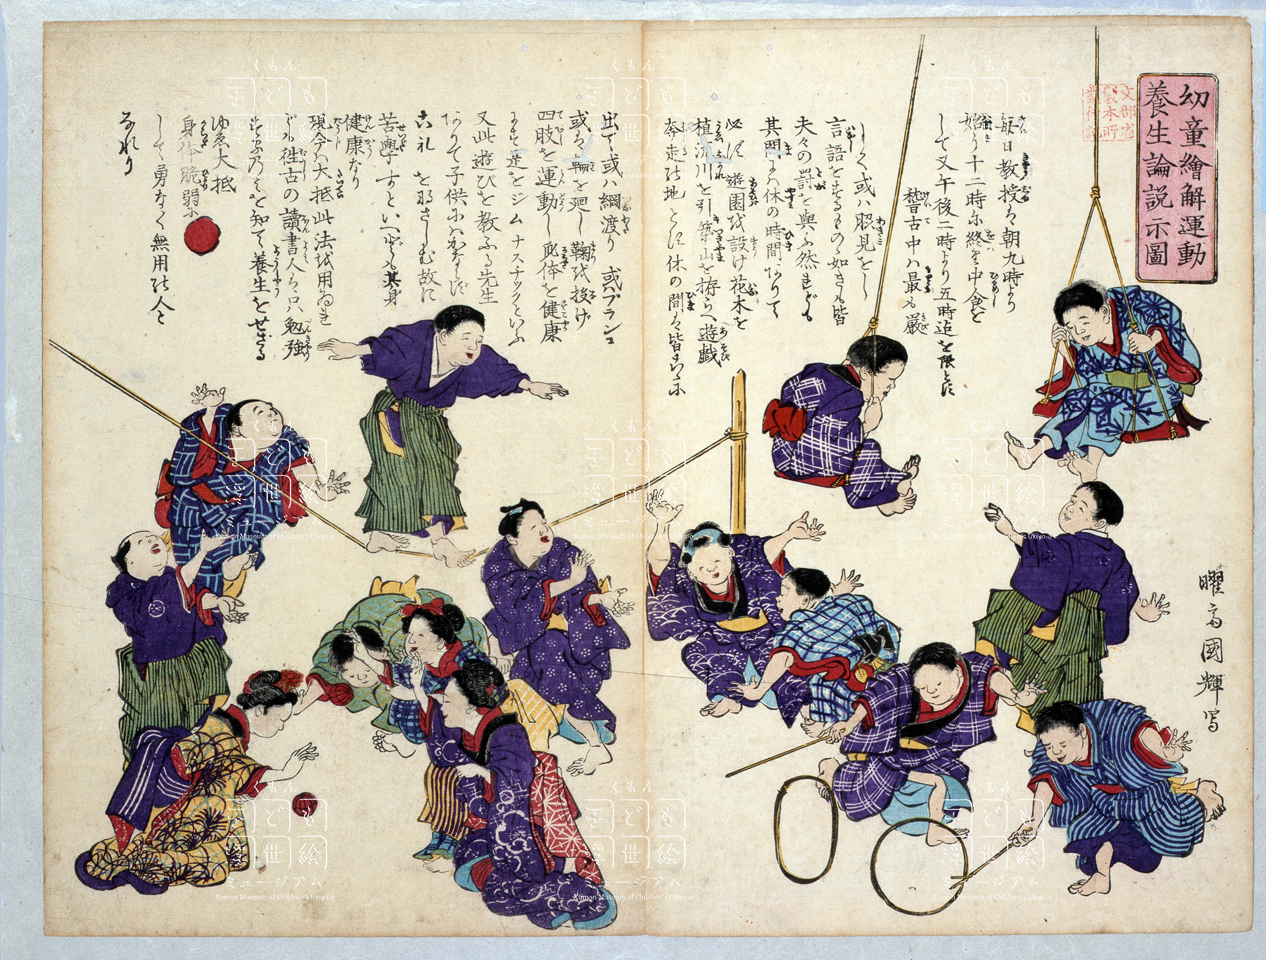 幼童繪解運動
養生論説示圖
文部省製本所發行記
毎日教授は朝九時より
始り十二時に終り中食を
して又午後二時より五時迄を限とす
稽古中ハ最も嚴
しく或ハ脇見をし
言語をするもの如きも皆
夫々の罰を與ふ然れども
其間にハ休の時間ありて
必ず遊園を設け花木を
植河川を引築山を拵らへ遊戯
奔走の地とす休の間は皆こゝに
出て或ハ綱渡り或ハブランコ
或は輪を廻し鞠を投げ
四肢を運動し身体を健康
にす是をジムナスチックといふ
又此遊びを教ふる先生
ありて子供にハおしなべて
是をなさしむ故に
苦學すといへども其身
健康なり
現今ハ大抵此法を用ゐれ
ども往古の讀書人ハ只勉強
するのみを知て養生をせざる
ゆゑ大抵
身体脆弱に
して勇なく無用の人と
なれり
曜齋國輝写
くもん
子ども
浮世絵
ミュージアム
Kumon Museum of Children's Ukiyo-e